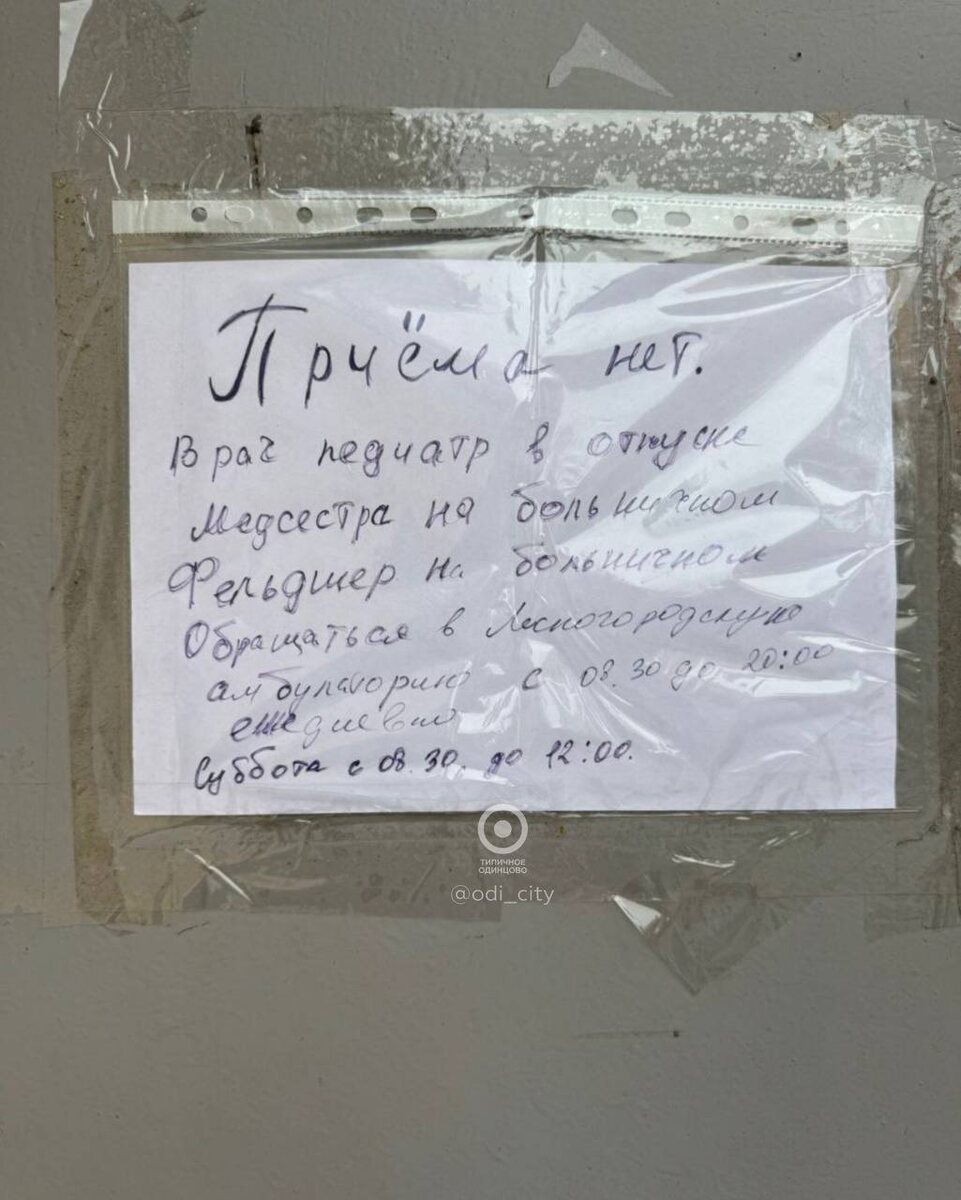 Приёма нет.
Врач педиатр в отпуске
Медсестра на больничном
Фельдшер на больничном
Обращаться в Лесногородскую
амбулаторию с 08.30 до 20:00
ежедневно
Суббота с 08.30. до 12:00.
ТИПИЧНОЕ
ОДИНЦОВО
@odi_city